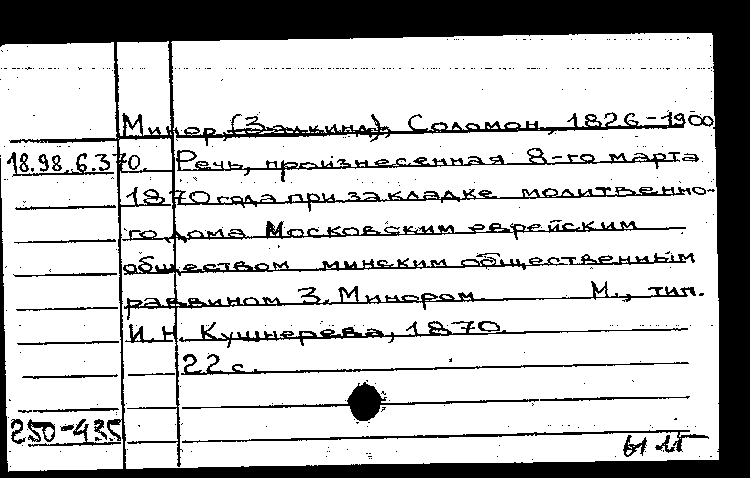 Минор, (Залкинд), Соломон, 1826-1900
18.98.6.370. Речь, произнесенная 8-го марта
1870 года при закладке молитвенно-
го дома Московским еврейским
обществом минским общественным
раввином З. Минором. М., тип.
И. Н. Кушнерева, 1870.
22 с.
250-435